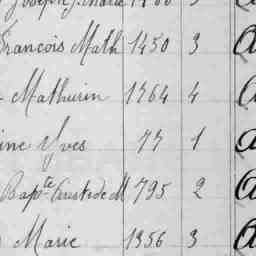 Joseph J. Marie
François Math 1450 3
Mathurin 1764 4
ine Yves 77 1
Bapte Aristide M 795 2
Marie 1356 3